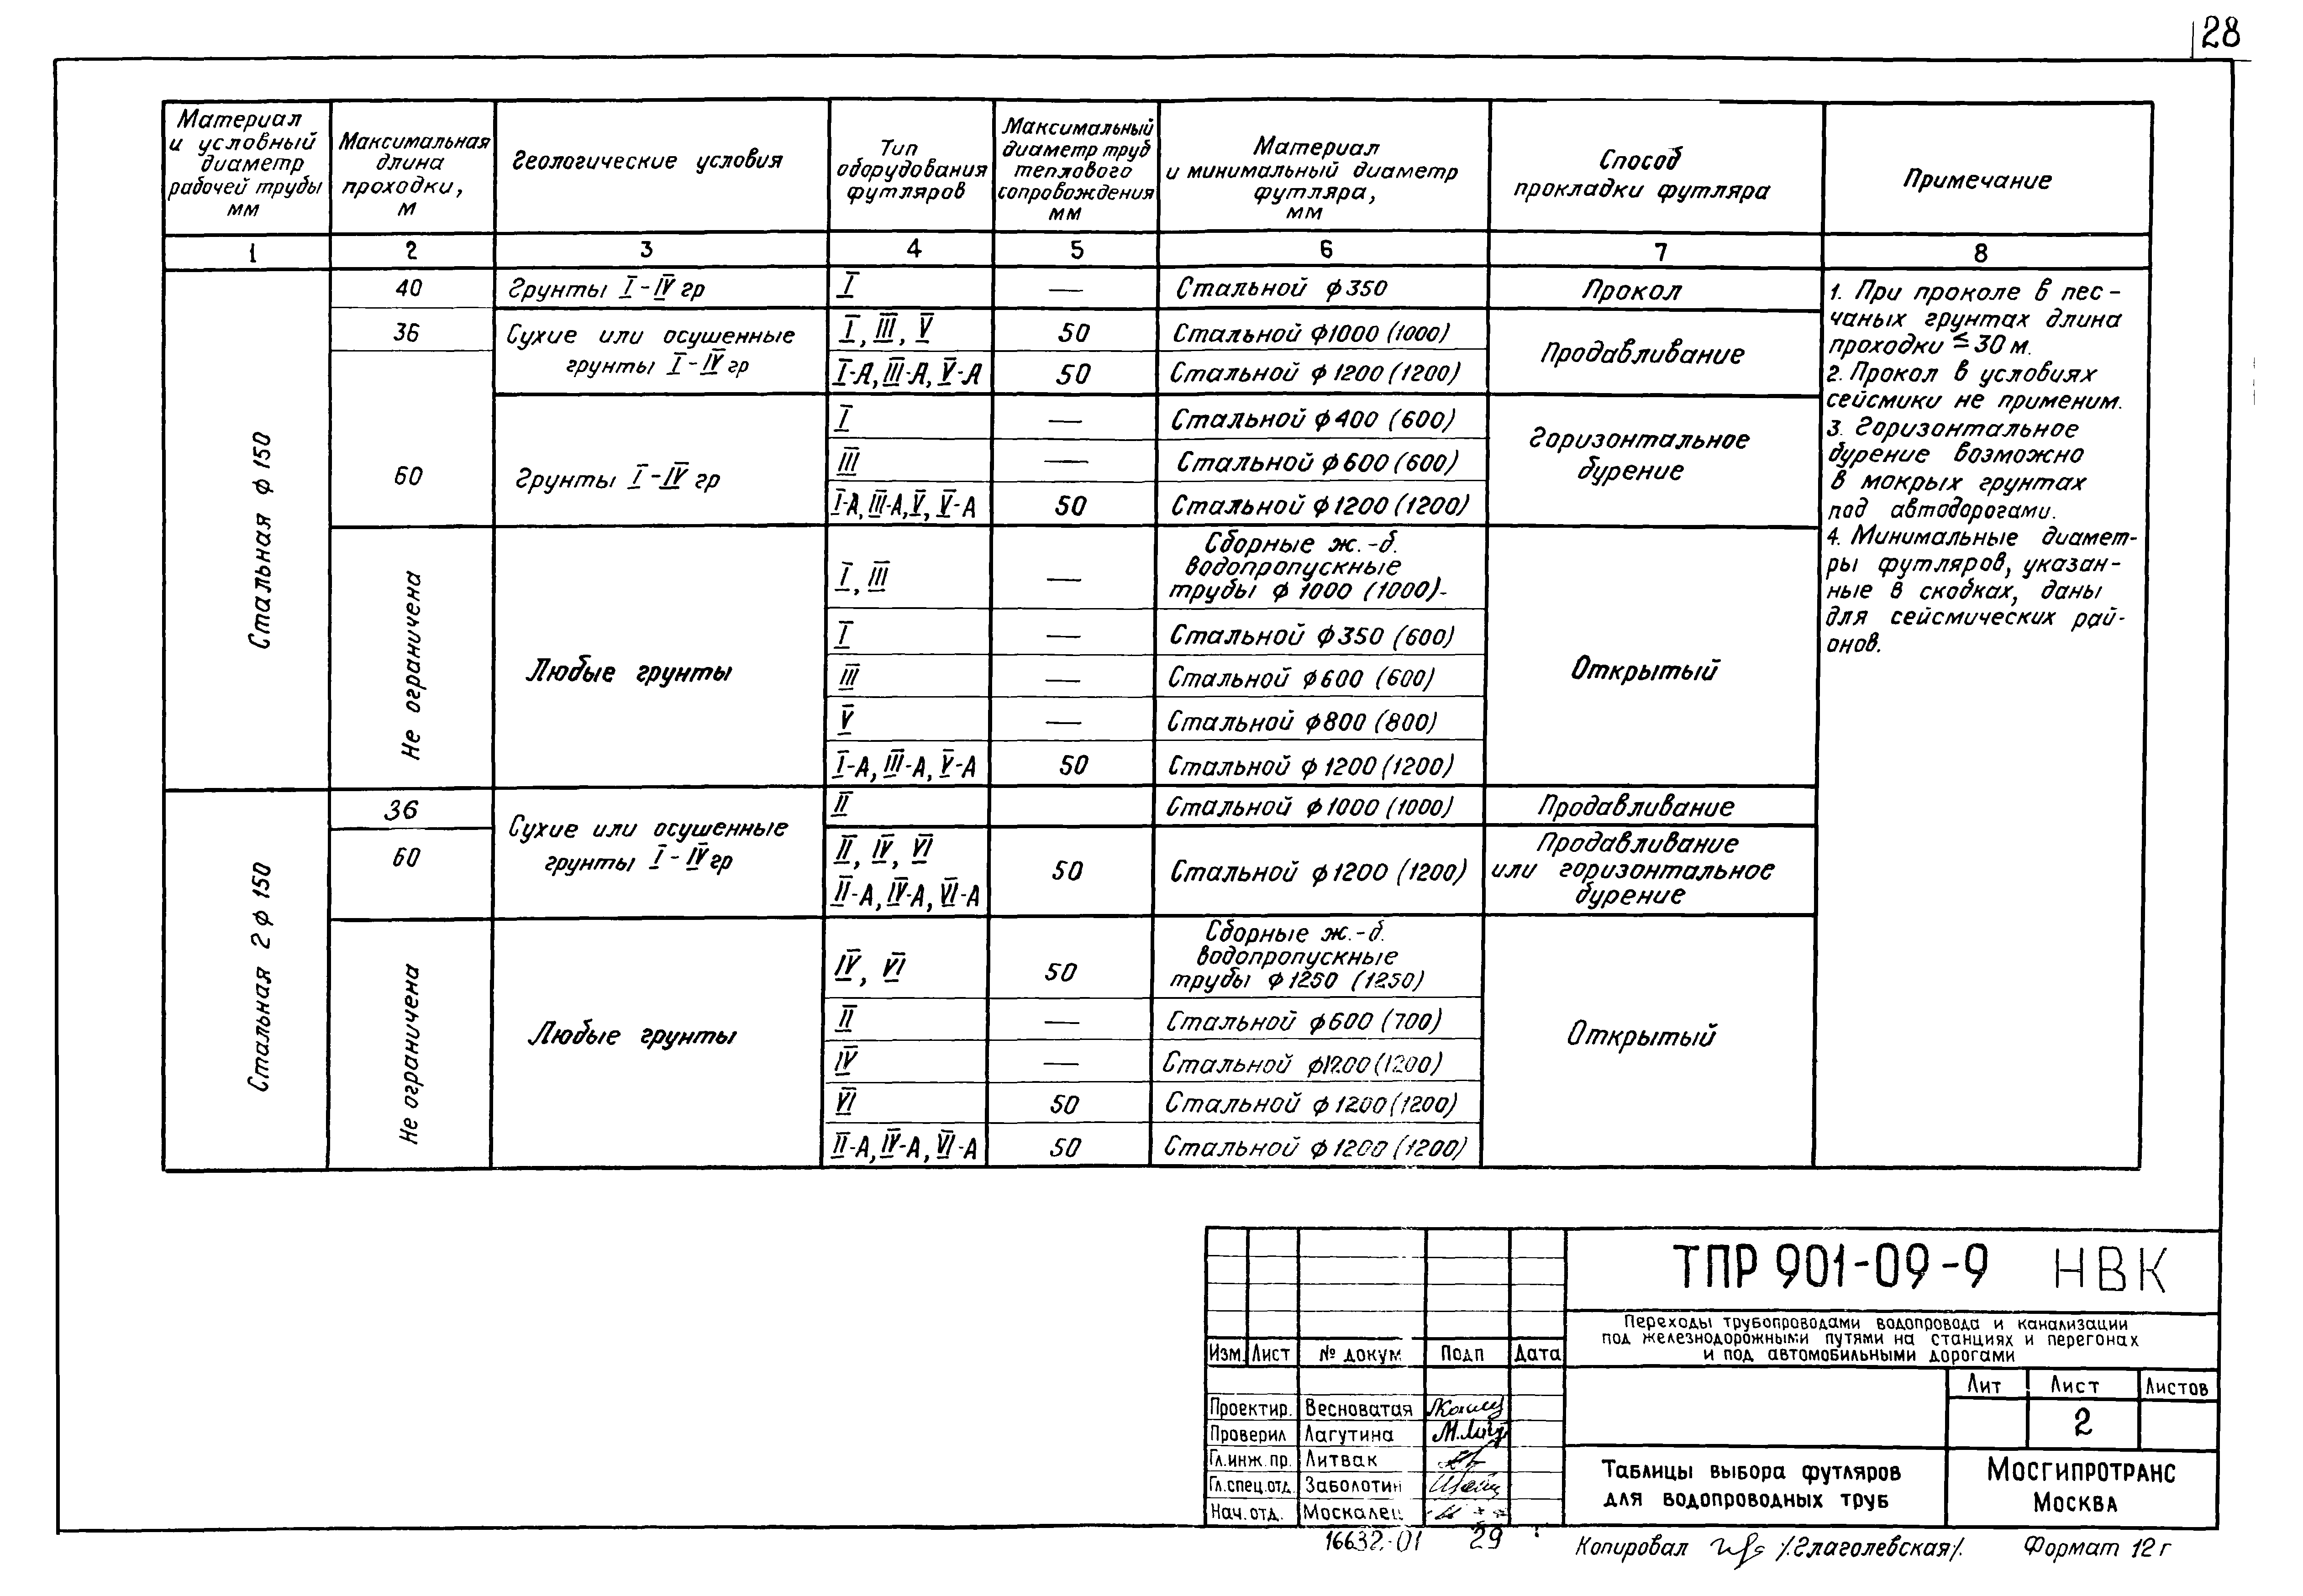 28
Материал
и условный
диаметр
рабочей трубы
мм
Максимальная
длина
проходки,
м
Геологические условия
Тип
оборудования
футляров
Максимальный
диаметр труб
теплового
сопровождения
мм
Материал
и минимальный диаметр
футляра,
мм
Способ
прокладки футляра
Примечание
1 2 3 4 5 6 7 8
Стальная ф 150
40 Грунты I-IV гр I — Стальной ф350 Прокол
36 Сухие или осушенные
грунты I-IV гр
I, III, V 50 Стальной ф1000 (1000)
Продавливание
I-А, III-А, V-А 50 Стальной ф 1200 (1200)
60 Грунты I-IV гр
I — Стальной ф400 (600)
Горизонтальное
бурение
III — Стальной ф600 (600)
I-А, III-А, V, V-А 50 Стальной ф1200 (1200)
Не ограничена
Любые грунты
I, III — Сборные ж.-б.
водопропускные
трубы ф 1000 (1000)-
Открытый
I — Стальной ф350 (600)
III — Стальной ф600 (600)
V — Стальной ф800 (800)
I-А, III-А, V-А 50 Стальной ф1200 (1200)
1. При проколе в пес-
чаных грунтах длина
проходки ≤ 30 м.
2. Прокол в условиях
сейсмики не применим.
3. Горизонтальное
бурение возможно
в мокрых грунтах
под автодорогами.
4. Минимальные диамет-
ры футляров, указан-
ные в скобках, даны
для сейсмических рай-
онов.
Стальная 2 ф 150
36
60
Сухие или осушенные
грунты I-IV гр
II Стальной ф1000 (1000) Продавливание
II, IV, VI
II-А, IV-А, VI-А
50 Стальной ф1200 (1200)
Продавливание
или горизонтальное
бурение
Не ограничена
Любые грунты
IV, VI 50 Сборные ж.-б.
водопропускные
трубы ф1250 (1250)
Открытый
II — Стальной ф600 (700)
IV — Стальной ф1200 (1200)
VI 50 Стальной ф1200 (1200)
II-А, IV-А, VI-А 50 Стальной ф1200 (1200)
ТПР 901-09-9 НВК
Переходы трубопроводами водопровода и канализации
под железнодорожными путями на станциях и перегонах
и под автомобильными дорогами
Изм. Лист № докум Подп Дата
Лит Лист Листов
2
Проектир. Весноватая
Проверил Лагутина М.Лагу
Гл.инж.пр. Литвак
Гл.спец.отд. Заболотин
Нач.отд. Москалец
Таблицы выбора футляров
для водопроводных труб
Мосгипротранс
Москва
16632-01 29
Копировал /Глаголевская/. Формат 12г